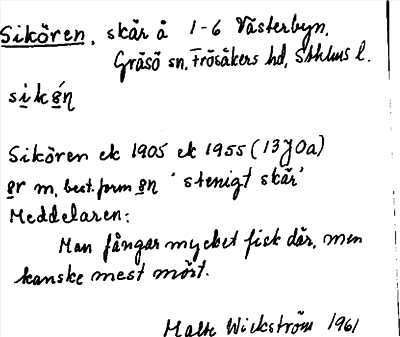 Sikören, skär å 1-6 Västerbyn,
Gräsö sn, Frösåkers hd, Sthlms l.
sikǿn
Sikören ek 1905 ek 1955 (13J0a)
ør m, best. form øn 'stenigt skär'
Meddelaren:
Man fångar mycket fisk där, men
kanske mest mört.
Malte Wickström 1961